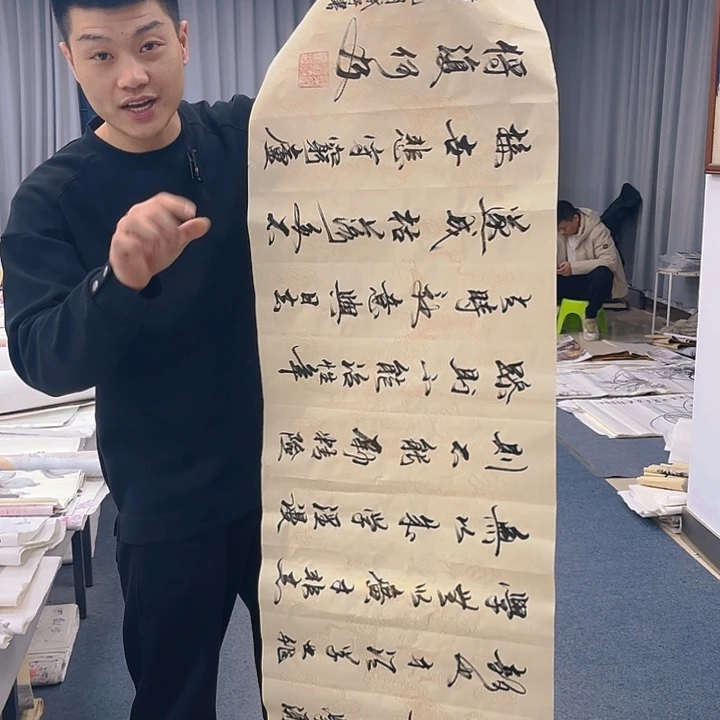 靜也才須學也非
學無以廣才非志
無以成學淫漫
則不能勵精險
躁則不能治性年
與時馳意與日去
遂成枯落多不
接世悲守窮廬
將復何及